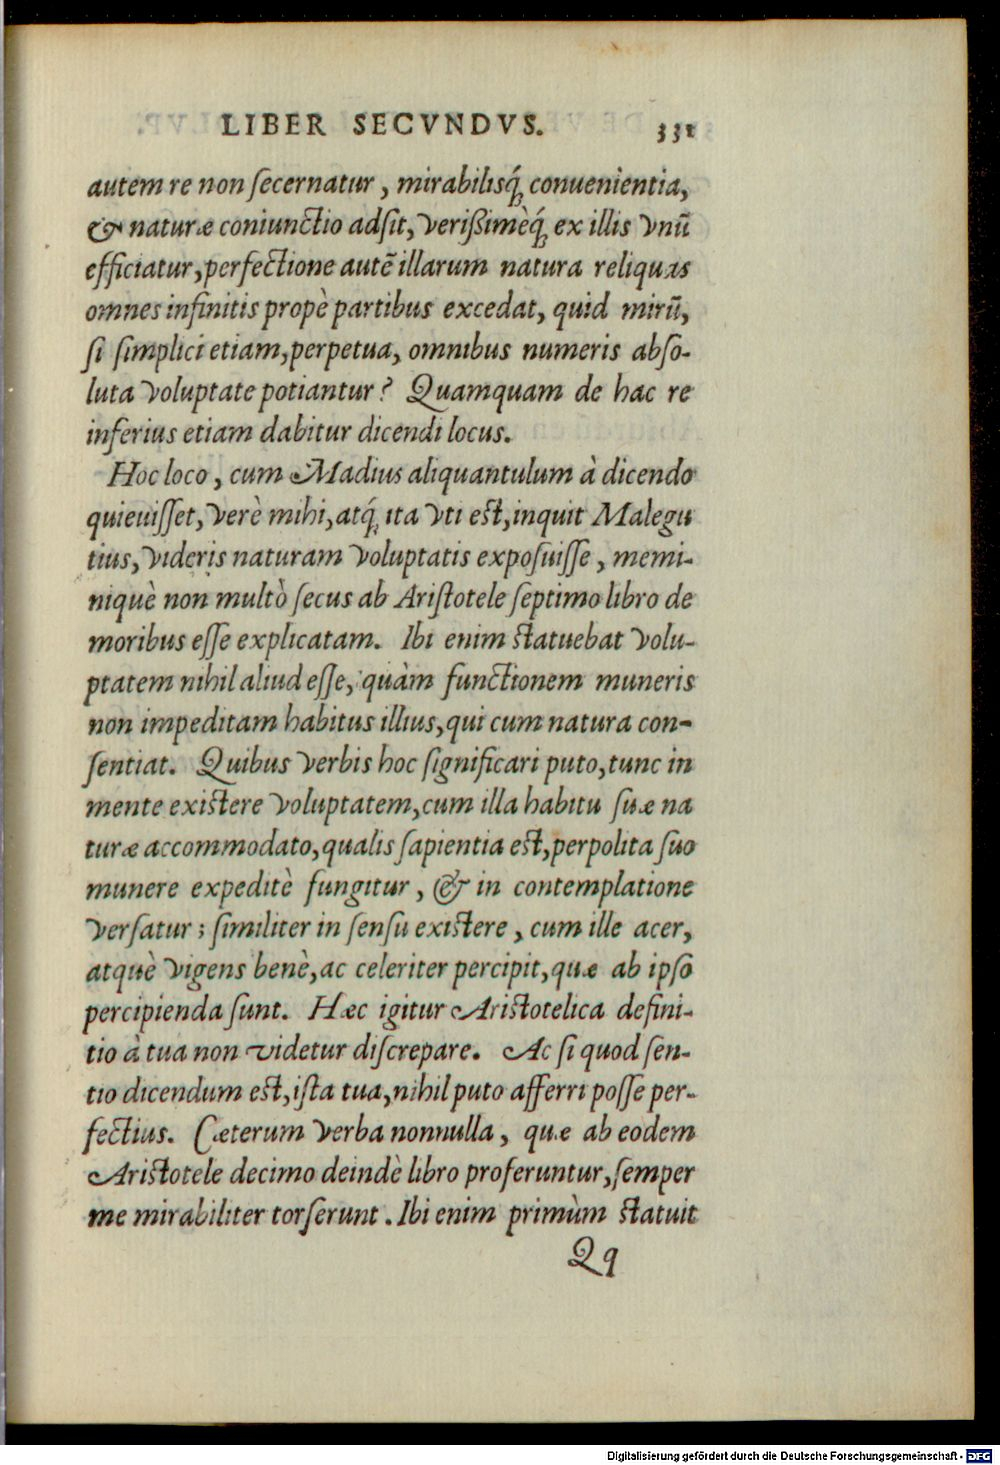 LIBER SECVNDVS. 331
autem re non ſecernatur, mirabilisq́; conuenientia,
& naturæ coniunctio adſit, verißimèq́; ex illis vnũ
efficiatur, perfectione autẽ illarum natura reliquas
omnes infinitis propè partibus excedat, quid mirũ,
ſi ſimplici etiam, perpetua, omnibus numeris abſo-
luta voluptate potiantur? Quamquam de hac re
inferius etiam dabitur dicendi locus.
Hoc loco, cum Madius aliquantulum à dicendo
quieuiſſet, verè mihi, atq́; ita vti eſt, inquit Malegu
tius, videris naturam voluptatis expoſuiſſe, memi-
niquè non multò ſecus ab Ariſtotele ſeptimo libro de
moribus eſſe explicatam. Ibi enim ſtatuebat volu-
ptatem nihil aliud eſſe, quàm functionem muneris
non impeditam habitus illius, qui cum natura con-
ſentiat. Quibus verbis hoc ſignificari puto, tunc in
mente exiſtere voluptatem, cum illa habitu ſuæ na
turæ accommodato, qualis ſapientia eſt, perpolita ſuo
munere expeditè fungitur, & in contemplatione
verſatur; ſimiliter in ſenſu exiſtere, cum ille acer,
atquè vigens benè, ac celeriter percipit, quæ ab ipſo
percipienda ſunt. Hæc igitur Ariſtotelica defini-
tio à tua non videtur diſcrepare. Ac ſi quod ſen-
tio dicendum eſt, iſta tua, nihil puto afferri poſſe per-
fectius. Cæterum verba nonnulla, quæ ab eodem
Ariſtotele decimo deindè libro proferuntur, ſemper
me mirabiliter torſerunt. Ibi enim primùm ſtatuit
Qq
Digitalisierung gefördert durch die Deutsche Forschungsgemeinschaft - DFG